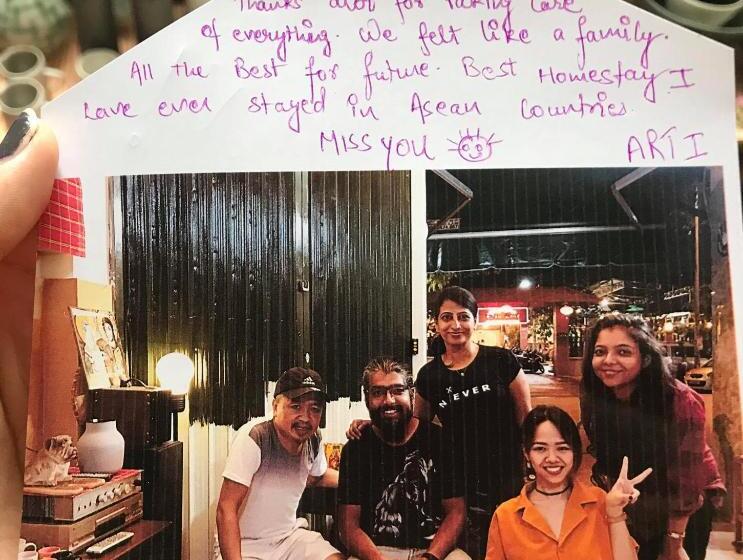 Thanks alot for taking care
of everything. We felt like a family.
All the Best for future. Best Homestay I
have ever stayed in Asean Countries.
MISS YOU ARTI
NEVER